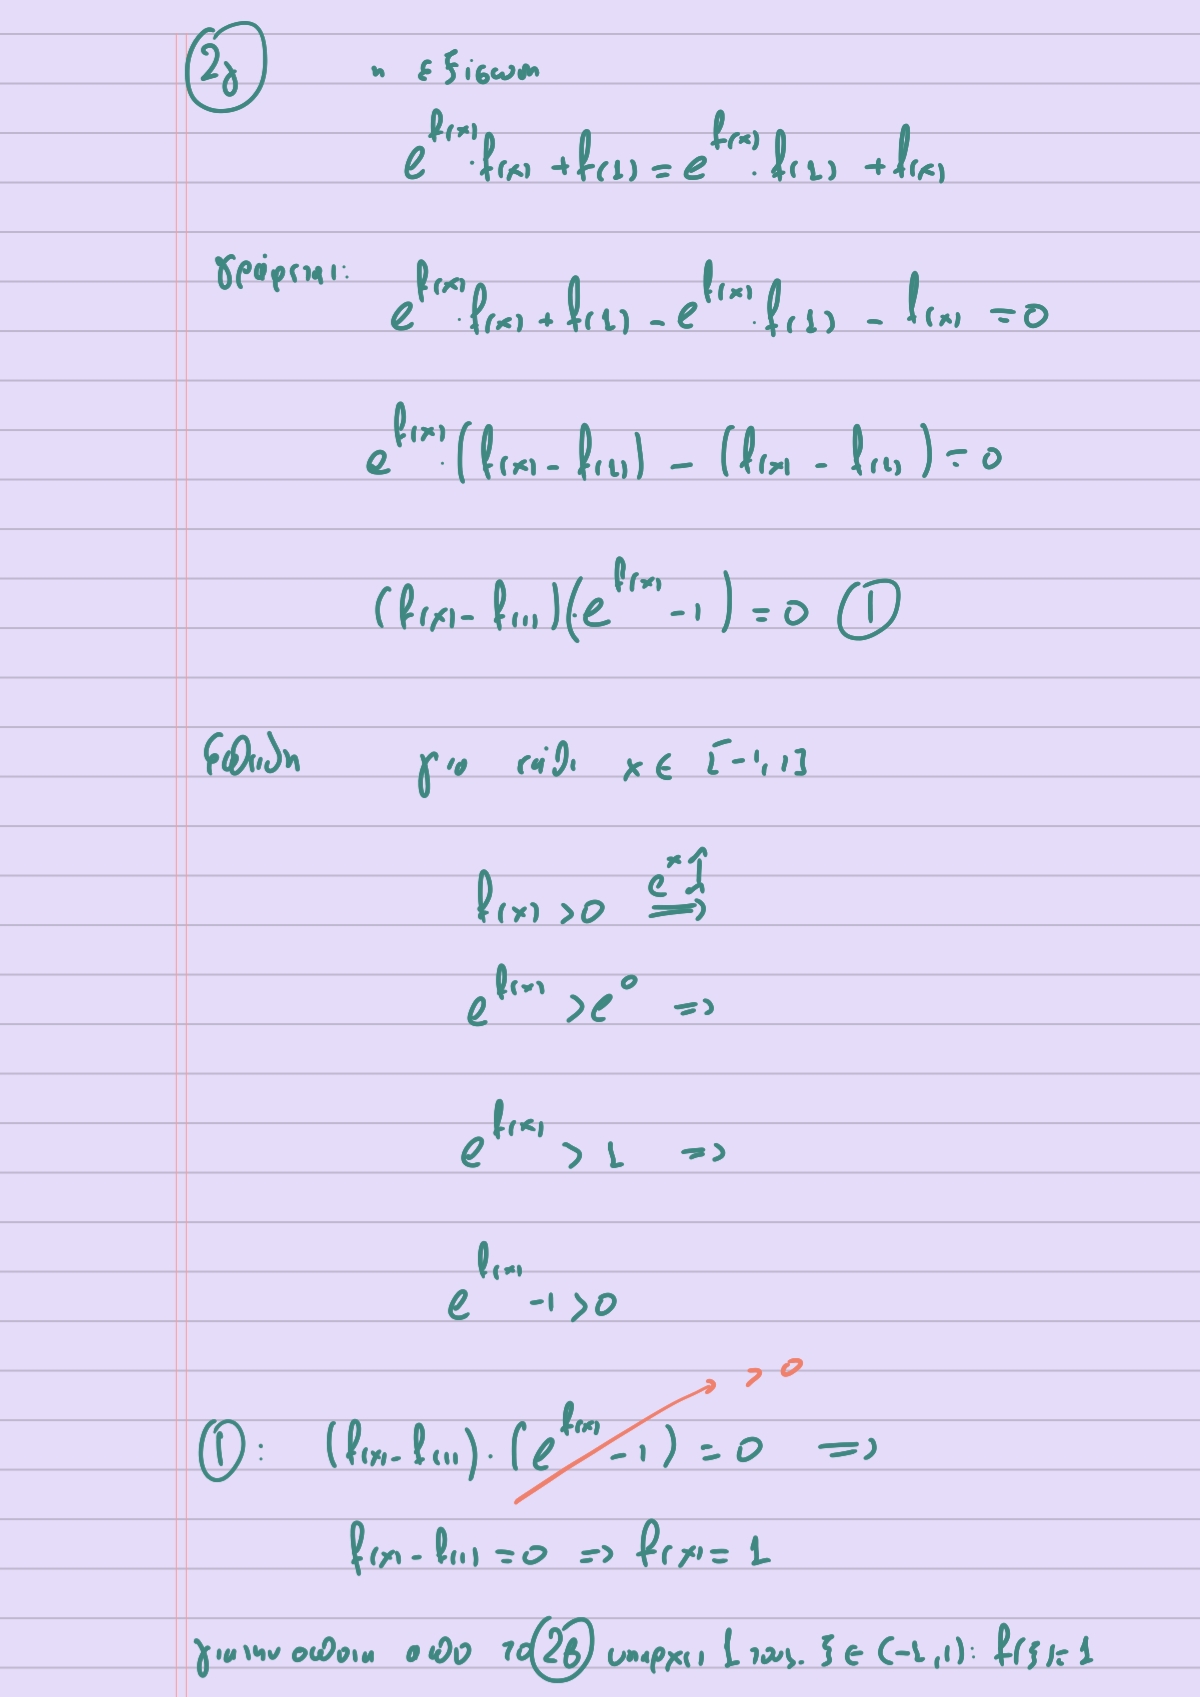 2γ η εξίσωση
e^{f(x)}·f(x) + f(1) = e^{f(x)}·f(1) + f(x)
γράφεται: e^{f(x)}·f(x) + f(1) - e^{f(x)}·f(1) - f(x) = 0
e^{f(x)}·(f(x) - f(1)) - (f(x) - f(1)) = 0
(f(x) - f(1))(e^{f(x)} - 1) = 0 ①
για κάθε x ∈ [-1,1]
f(x) > 0 e^x↑ ⟹
e^{f(x)} > e^0 =>
e^{f(x)} > 1 =>
e^{f(x)} - 1 > 0
> 0
①: (f(x) - f(1))·(e^{f(x)} - 1) = 0 =>
f(x) - f(1) = 0 => f(x) = 1
για την οποία από το 2β υπάρχει 1 τουλ. ξ ∈ (-1,1): f(ξ) = 1